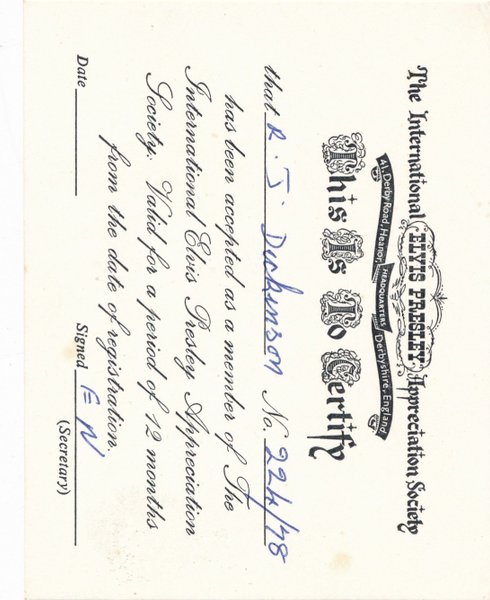 The International ELVIS PRESLEY Appreciation Society
41, Derby Road, Heanor, HEADQUARTERS Derbyshire, England
This Is To Certify
that R. J. Dickinson No. 224/78
has been accepted as a member of The
International Elvis Presley Appreciation
Society. Valid for a period of 12 months
from the date of registration.
Date Signed E N
(Secretary)